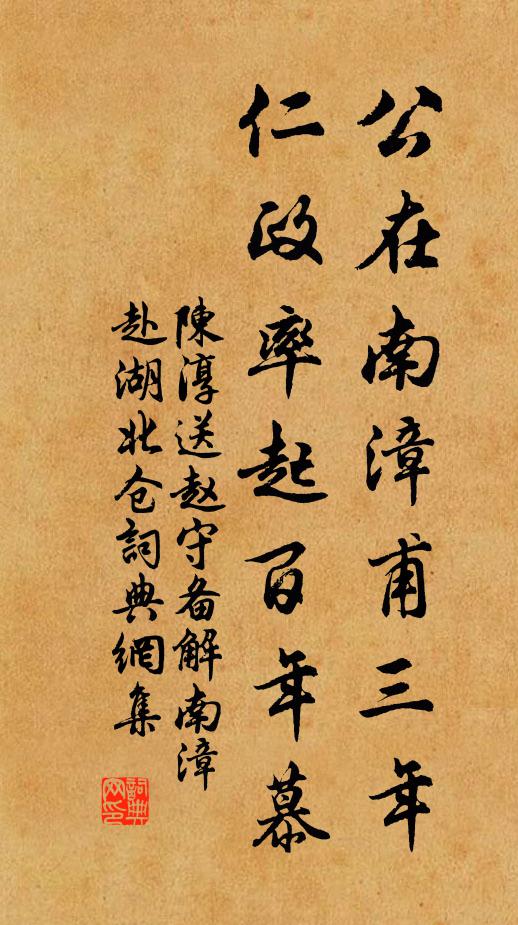 公在南漳甫三年
仁政率起百年慕
陳淳送赵守备解南漳
赴湖北仓詞典網集
詞典网印